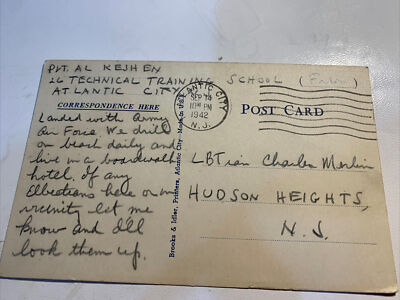 PVT. AL KESHEN
26 TECHNICAL TRAINING SCHOOL
ATLANTIC CITY
CORRESPONDENCE HERE
Landed with Army
Air Force. We drill
on beach daily and
live in a boardwalk
hotel, if any
here or in
vicinity let me
know and I'll
look them up.
Brooks & Idler, Printers, Atlantic City
ATLANTIC CITY
SEP
PM
1942
N.J.
POST CARD
Charles Merlin
HUDSON HEIGHTS,
N.J.